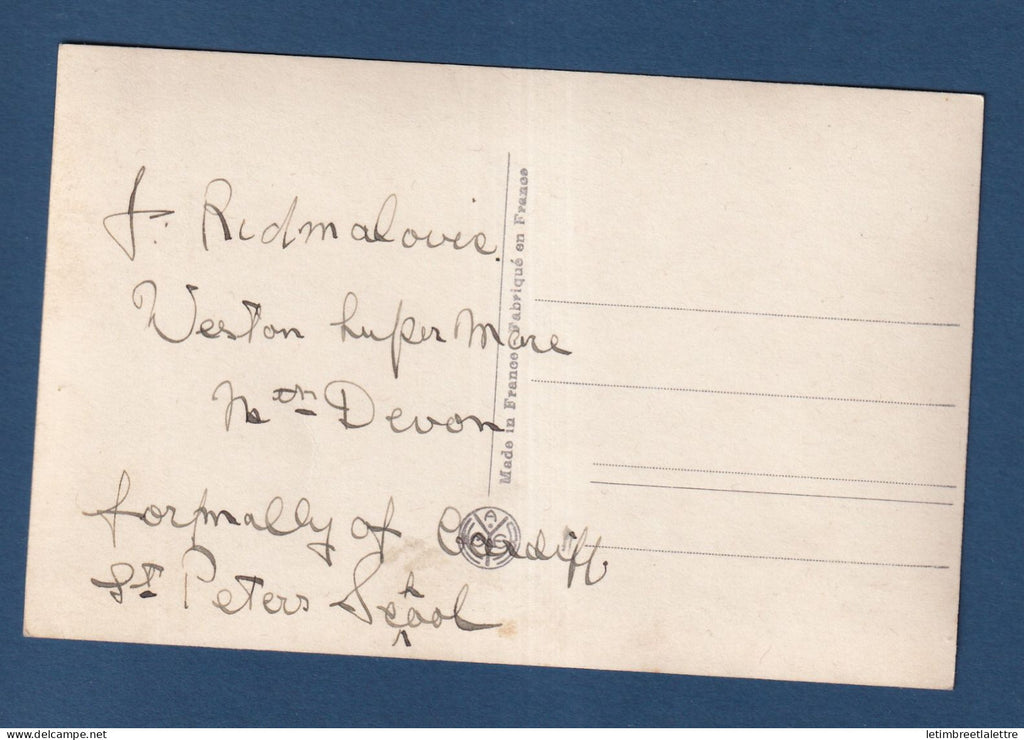 J. Ridmalovic.
Weston super Mare
Nth Devon
formally of Cardiff
St Peters School
Made in France Fabriqué en France
letimbreetlalettre